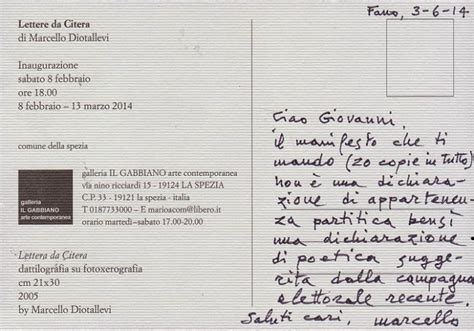 Lettere da Citera
di Marcello Diotallevi
Inaugurazione
sabato 8 febbraio
ore 18.00
8 febbraio – 13 marzo 2014
comune della spezia
galleria
IL GABBIANO
arte contemporanea
galleria IL GABBIANO arte contemporanea
via nino ricciardi 15 - 19124 LA SPEZIA
C.P. 33 - 19121 la spezia - italia
T 0187733000 – E marioacom@libero.it
orario martedì-sabato 17.00-20.00
Lettera da Citera
dattilografia su fotoxerografia
cm 21x30
2005
by Marcello Diotallevi
Fano, 3-6-14
Ciao Giovanni,
il manifesto che ti
mando (20 copie in tutto)
non è una dichiara-
zione di appartenen-
za partitica bensì
una dichiarazione
di poetica sugge-
rita dalla campagna
elettorale recente.
Saluti cari, marcello